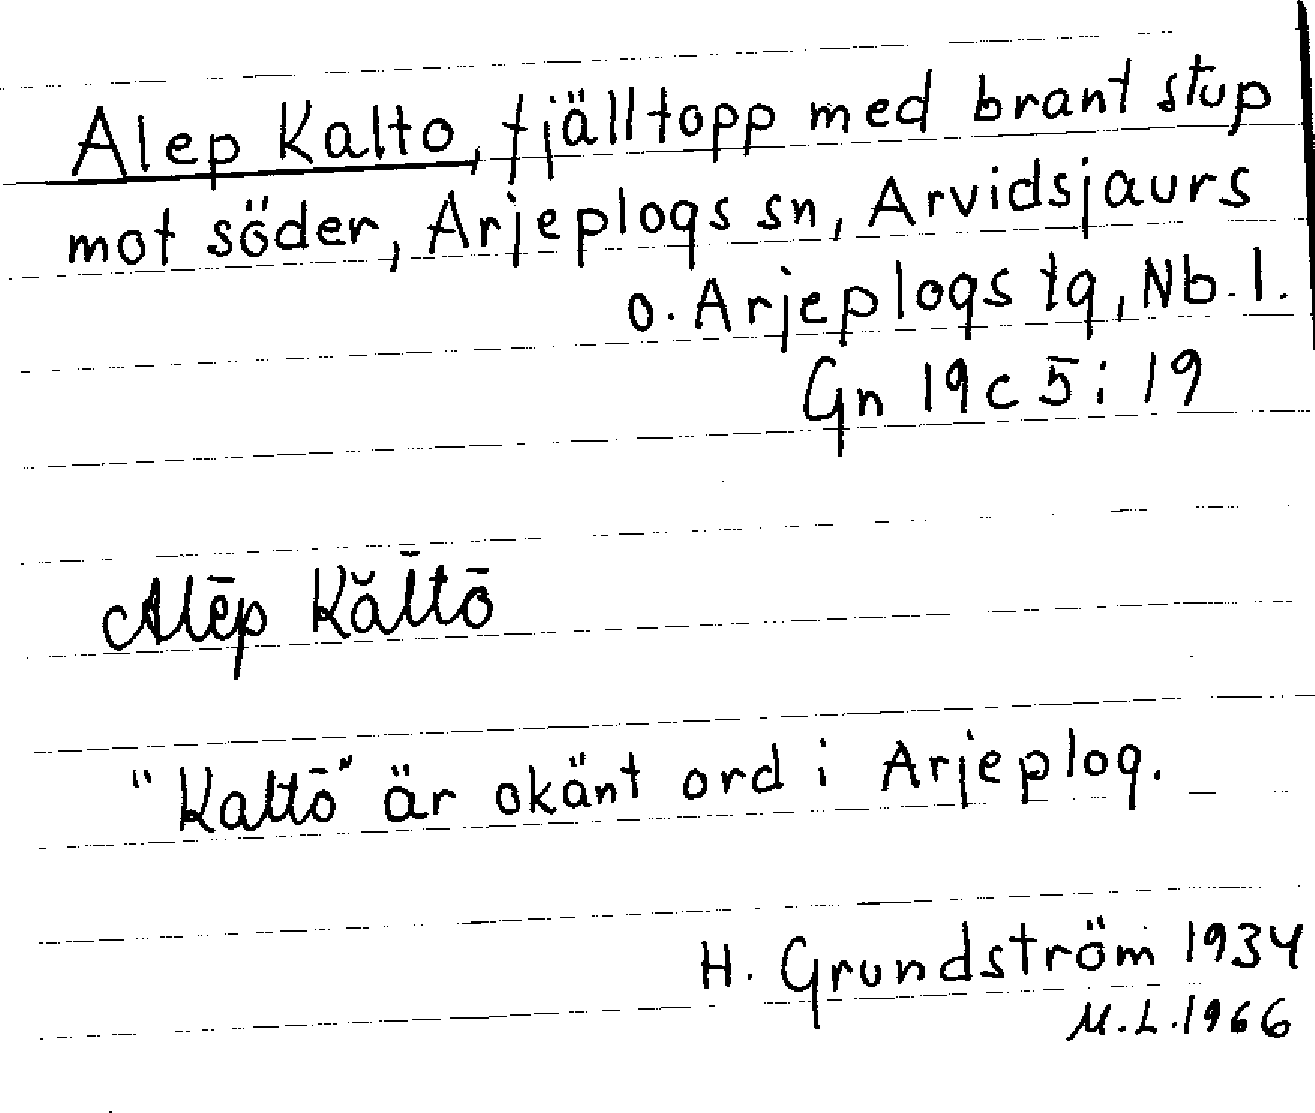 Alep Kalto, fjälltopp med brant stup
mot söder, Arjeplogs sn, Arvidsjaurs
o. Arjeplogs tg, Nb. l.
Gn 19c 5i 19
Alēp Kăl̄tō
"Kaltō" är okänt ord i Arjeplog.
H. Grundström 1934
M.L.1966